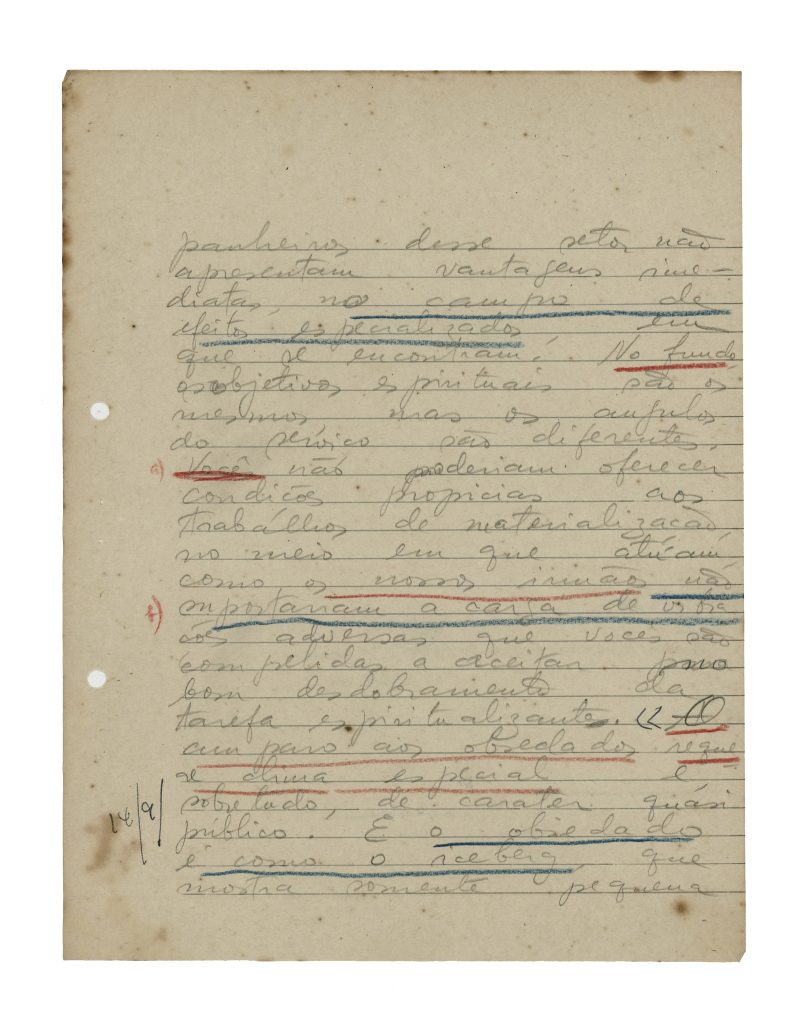 panheiros desse setor não
apresentam vantagens ime-
diatas, no campo de
efeitos especializados em
que se encontram. No fundo
os objetivos espirituais são os
mesmos mas os angulos
do serviço são diferentes.
Vocês não poderiam oferecer
condicões propicias aos
trabalhos de materialização,
no meio em que atuam,
como os nossos irmãos não
suportariam a carga de vibra
cões adversas que voces são
compelidas a aceitar pmo
bom desdobramento da
tarefa espiritualizante. << O
amparo aos obsedados reque
re clima especial e
sobretudo, de carater quási
público. E o obsedado
é como o iceberg, que
mostra somente pequena
14/9/